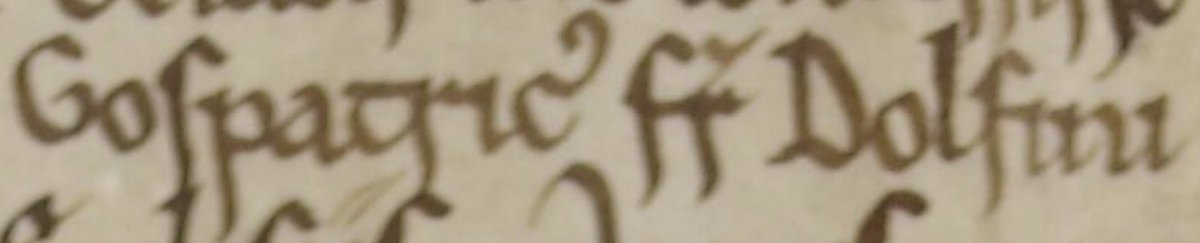 Goſpatricꝰ fr̄ Dolfini